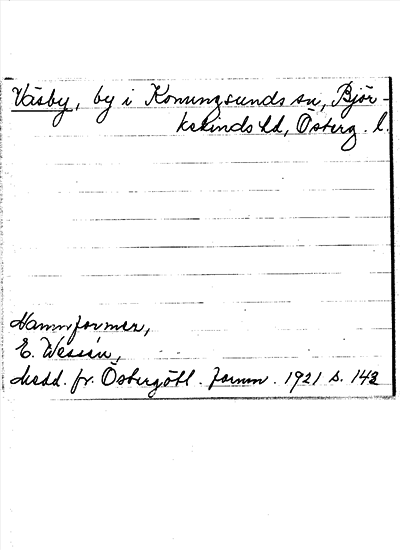 Väsby, by i Konungsunds sn, Björ-
kekinds hd, Österg. l.
Namnformer,
E. Wessén,
Medd. fr. Östergötl. fornm. 1921 s. 143